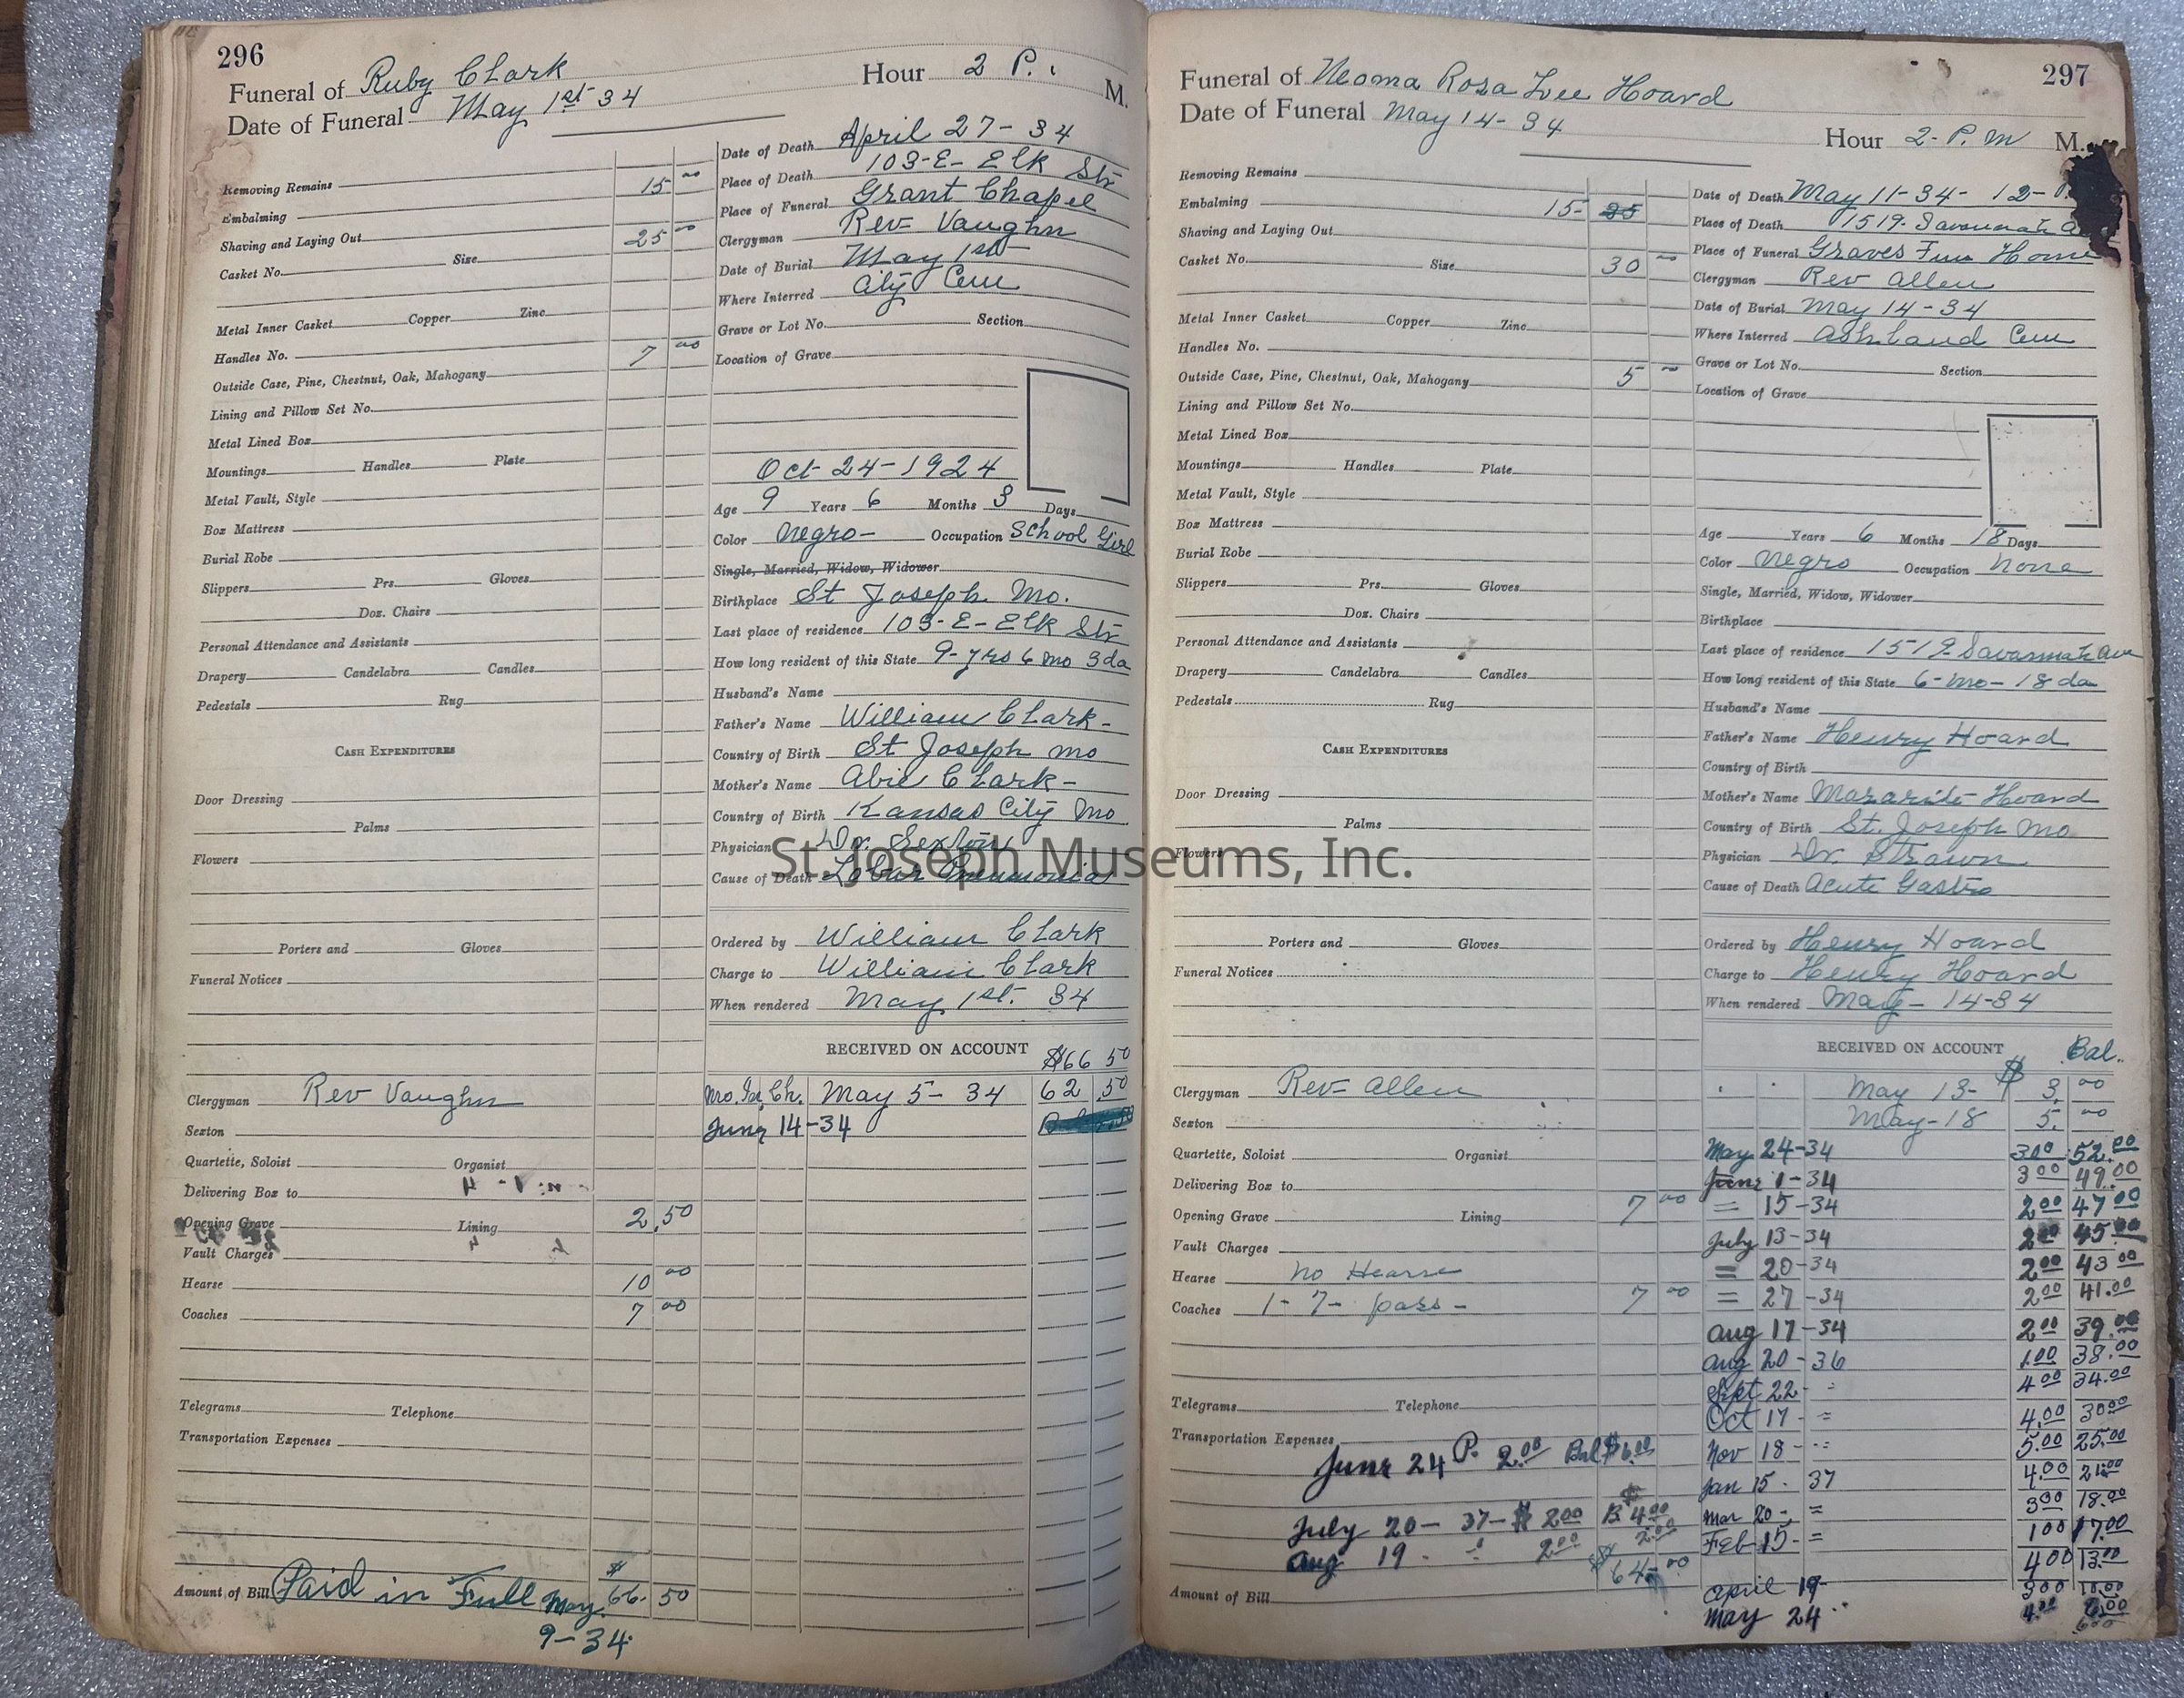 296
Funeral of Ruby Clark Hour 2 P. M.
Date of Funeral May 1st 34
Removing Remains
Embalming 15 00
Shaving and Laying Out
Casket No. Size 25 00
Metal Inner Casket Copper Zinc
Handles No.
Outside Case, Pine, Chestnut, Oak, Mahogany 7 00
Lining and Pillow Set No.
Metal Lined Box
Mountings Handles Plate
Metal Vault, Style
Box Mattress
Burial Robe
Slippers Prs. Gloves
Doz. Chairs
Personal Attendance and Assistants
Drapery Candelabra Candles
Pedestals Rug
CASH EXPENDITURES
Door Dressing
Palms
Flowers
Porters and Gloves
Funeral Notices
Clergyman Rev Vaughn
Sexton
Quartette, Soloist Organist
Delivering Box to
Opening Grave Lining 2.50
Vault Charges
Hearse 10 00
Coaches 7 00
Telegrams Telephone
Transportation Expenses
Amount of Bill Paid in Full May $66.50
9-34
Date of Death April 27-34
Place of Death 103-E-Elk Str
Place of Funeral Grant Chapel
Clergyman Rev- Vaughn
Date of Burial May 1st
Where Interred City Cem
Grave or Lot No. Section
Location of Grave
Oct-24-1924
Age 9 Years 6 Months 3 Days
Color Negro- Occupation School Girl
Single, Married, Widow, Widower
Birthplace St Joseph Mo.
Last place of residence 103-E-Elk Str
How long resident of this State 9-yrs 6 mo 3da
Husband's Name
Father's Name William Clark-
Country of Birth St Joseph Mo
Mother's Name Abie Clark-
Country of Birth Kansas City Mo
Physician Dr. Sexton
Cause of Death Lobar Pneumonia
Ordered by William Clark
Charge to William Clark
When rendered May 1st. 34
RECEIVED ON ACCOUNT $66 50
May 5- 34 62.50
June 14-34
297
Funeral of Neoma Rosa Lee Hoard
Date of Funeral May 14-34
Hour 2-P.M M.
Removing Remains
Embalming 15- 25
Shaving and Laying Out
Casket No. Size 30 00
Metal Inner Casket Copper Zinc
Handles No.
Outside Case, Pine, Chestnut, Oak, Mahogany 5 00
Lining and Pillow Set No.
Metal Lined Box
Mountings Handles Plate
Metal Vault, Style
Box Mattress
Burial Robe
Slippers Prs. Gloves
Doz. Chairs
Personal Attendance and Assistants
Drapery Candelabra Candles
Pedestals Rug
CASH EXPENDITURES
Door Dressing
Palms
Flowers
Porters and Gloves
Funeral Notices
Clergyman Rev- Allen
Sexton
Quartette, Soloist Organist
Delivering Box to
Opening Grave Lining 7 00
Vault Charges
Hearse no Hearse
Coaches 1-7- pass- 7 00
Telegrams Telephone
Transportation Expenses
June 24 P. 2.00 Bal $6.00
July 20- 37-$ 2.00 B. $4.00
Aug 19 - " 2.00 2.00
Amount of Bill $64.00
Date of Death May 11-34- 12-
Place of Death 1519. Savannah
Place of Funeral Graves Fun Home
Clergyman Rev Allen
Date of Burial May 14-34
Where Interred Ashland Cem
Grave or Lot No. Section
Location of Grave
Age Years 6 Months 18 Days
Color Negro Occupation none
Single, Married, Widow, Widower
Birthplace
Last place of residence 1519 Savannah Ave
How long resident of this State 6-mo-18 da
Husband's Name
Father's Name Henry Hoard
Country of Birth
Mother's Name Hoard
Country of Birth St. Joseph Mo
Physician Dr. Strawn
Cause of Death Acute Gastro
Ordered by Henry Hoard
Charge to Henry Hoard
When rendered May- 14-34
RECEIVED ON ACCOUNT $ Bal.
May 13- 3.00
May-18 5.00
May 24-34 3.00 52.00
June 1-34 3.00 49.00
= 15-34 2.00 47.00
July 13-34 2.00 45.00
= 20-34 2.00 43.00
= 27-34 2.00 41.00
Aug 17-34 2.00 39.00
Aug 20-36 1.00 38.00
Sept 22- = 4.00 34.00
Oct 17- = 4.00 30.00
Nov 18- = 5.00 25.00
Jan 15. 37 4.00 21.00
Mar 20- = 3.00 18.00
Feb 15- = 1.00 17.00
4.00 13.00
April 19- 3.00 10.00
May 24 4.00 6.00
6.00
St. Joseph Museums, Inc.